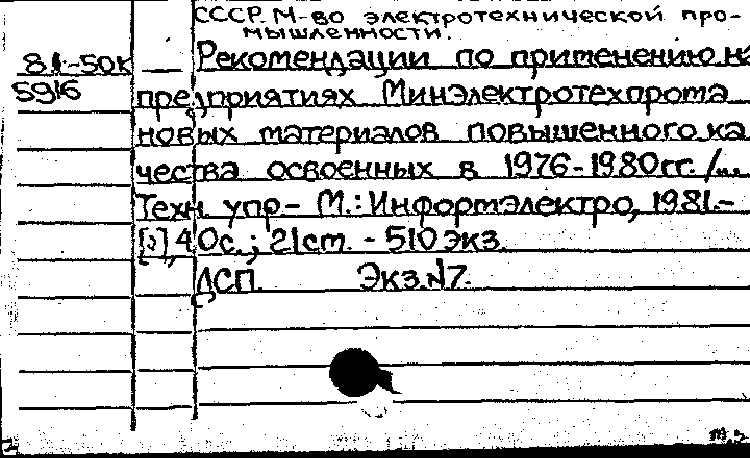 СССР. М-во электротехнической про-
мышленности.
81-50к Рекомендации по применению на
5916 предприятиях Минэлектротехпрома
новых материалов повышенного ка
чества освоенных в 1976-1980гг. /
Техн. упр.- М.: Информэлектро, 1981.-
40с.; 21см. - 510 экз.
ДСП. Экз.№7.